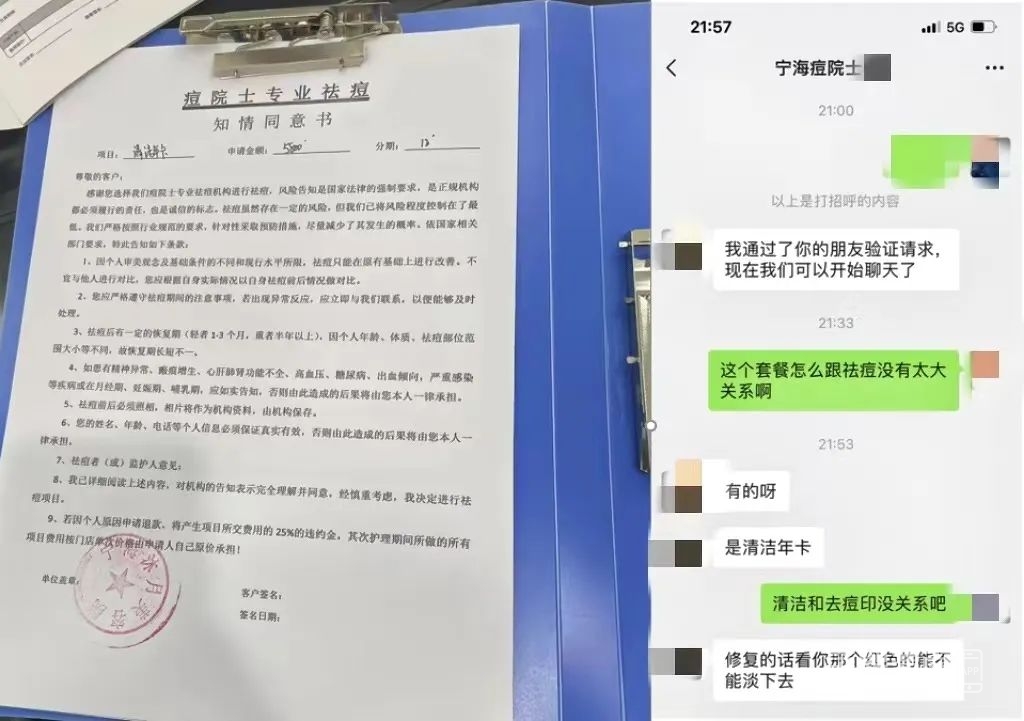 痘院士专业祛痘
知情同意书
项目：清洁卡 申请金额：5800 分期：12
尊敬的客户：
感谢您选择我们痘院士专业祛痘机构进行祛痘，风险告知是国家法律的强制要求，是正规机构
都必须履行的责任，也是诚信的标志。祛痘虽然存在一定的风险，但我们已将风险程度控制在了最
低。我们严格按照行业规范的要求，针对性采取预防措施，尽量减少了其发生的概率。依国家相关
部门要求，特此告知如下条款：
1、因个人审美观念及基础条件的不同和现行水平所限，祛痘只能在原有基础上进行改善，不
宜与他人进行对比。您应根据自身实际情况以自身祛痘前后情况做对比。
2、您应严格遵守祛痘期间的注意事项，若出现异常反应，应立即与我们联系，以便能够及时
处理。
3、祛痘后有一定的恢复期（轻者1-3个月，重者半年以上），因个人年龄、体质、祛痘部位范
围大小等不同，故恢复期长短不一、
4、如患有精神异常、瘢痕增生、心肝肺肾功能不全、高血压、糖尿病、出血倾向，严重感染
等疾病或在月经期、妊娠期、哺乳期，应如实告知，否则由此造成的后果将由您本人一律承担。
5、祛痘前后必须照相，相片将作为机构资料，由机构保存。
6、您的姓名、年龄、电话等个人信息必须保证真实有效，否则由此造成的后果将由您本人一
律承担。
7、祛痘者（或）监护人意见：
8、我已详细阅读上述内容，对机构的告知表示完全理解并同意，经慎重考虑，我决定进行祛
痘项目。
9、若因个人原因申请退款、将产生项目所交费用的25%的违约金，其次护理期间所做的所有
项目费用按门店单次价格由申请人自己原价承担！
单位盖章：
客户签名：
签名日期：
21:57 5G
宁海痘院士
21:00
以上是打招呼的内容
我通过了你的朋友验证请求，
现在我们可以开始聊天了
21:33
这个套餐怎么跟祛痘没有太大
关系啊
21:53
有的呀
是清洁年卡
清洁和去痘印没关系吧
修复的话看你那个红色的能不
能淡下去